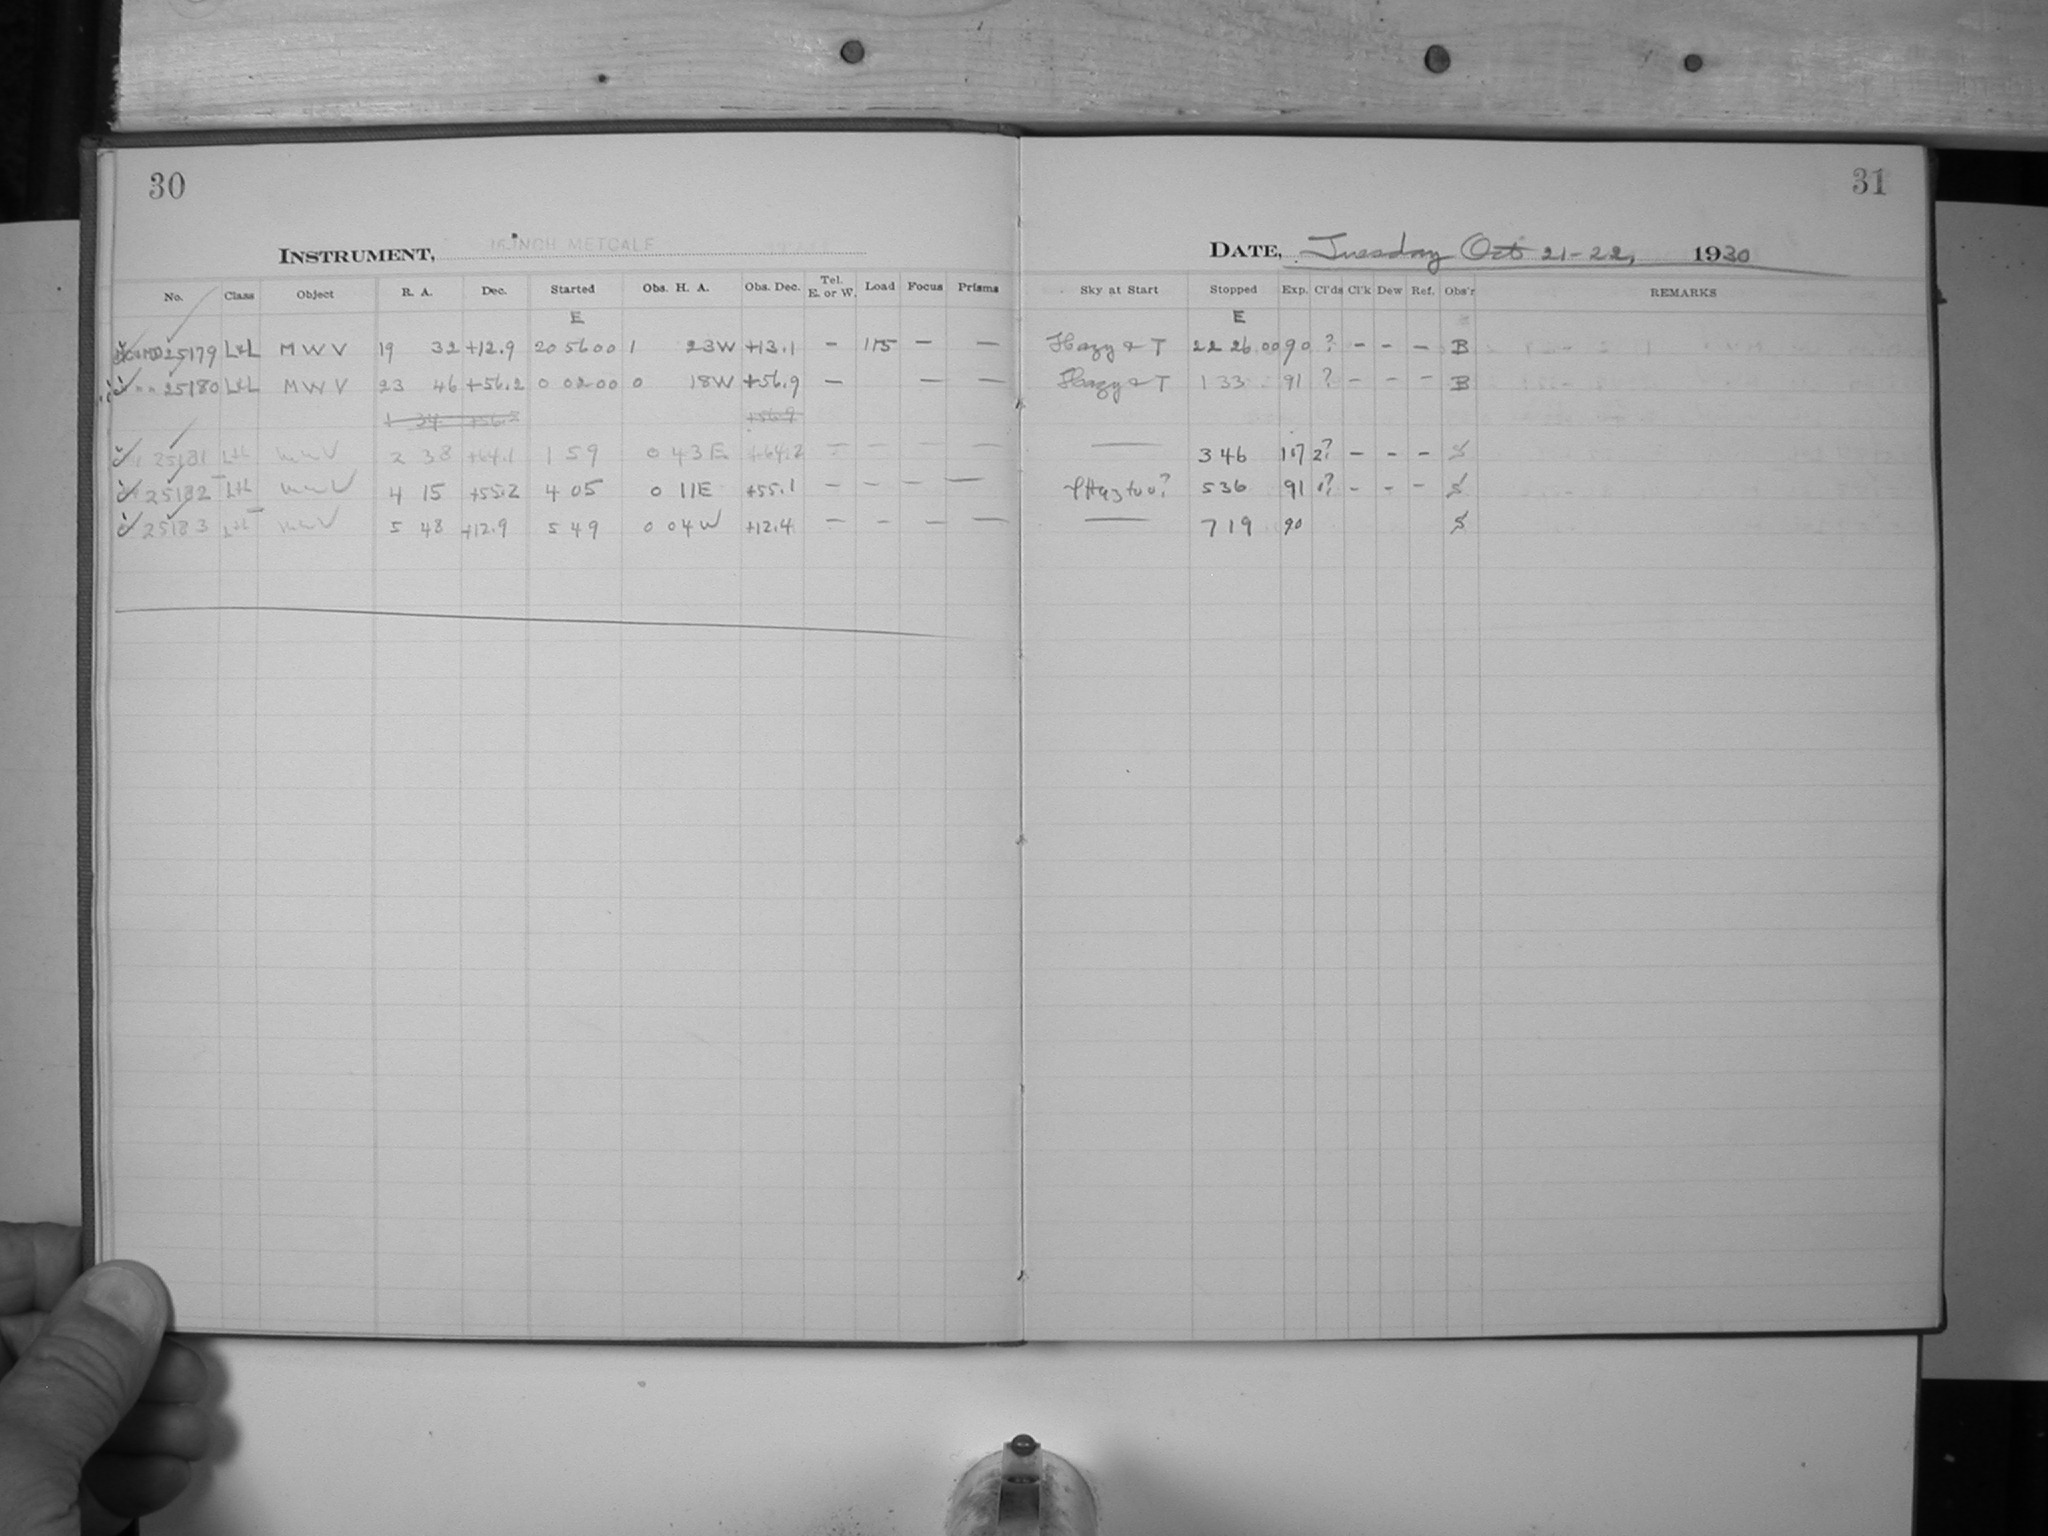 30
31
INSTRUMENT, 16-INCH METCALF
DATE, Tuesday Oct 21-22, 1930
No. Class Object R. A. Dec. Started Obs. H. A. Obs. Dec. Tel. E. or W. Load Focus Prisms Sky at Start Stopped Exp. Cl'ds Cl'k Dew Ref. Obs'r REMARKS
E E
25179 L+L M W V 19 32 +12.9 20 56 00 1 23W +13.1 - 115 - - Hazy & T 22 26 00 90 ? - - - B
25180 L+L M W V 23 46 +56.2 0 02 00 0 18W +56.9 - - - Hazy & T 1 33 91 ? - - - B
1 34 +56.2 +56.9
25181 L+L MWV 2 38 +64.1 1 59 0 43E +64.2 - - - - — 3 46 107 2? - - - S
25182 L+L MWV 4 15 +55.2 4 05 0 11E +55.1 - - - - 5 36 91 ? - - - S
25183 L+L MWV 5 48 +12.9 5 49 0 04W +12.4 - - - - — 7 19 90 S